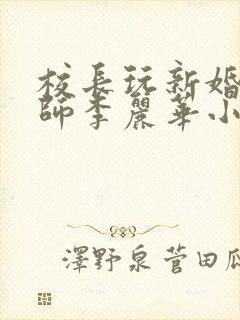 校長玩新婚
師李麗華小
澤野泉菅田瓜